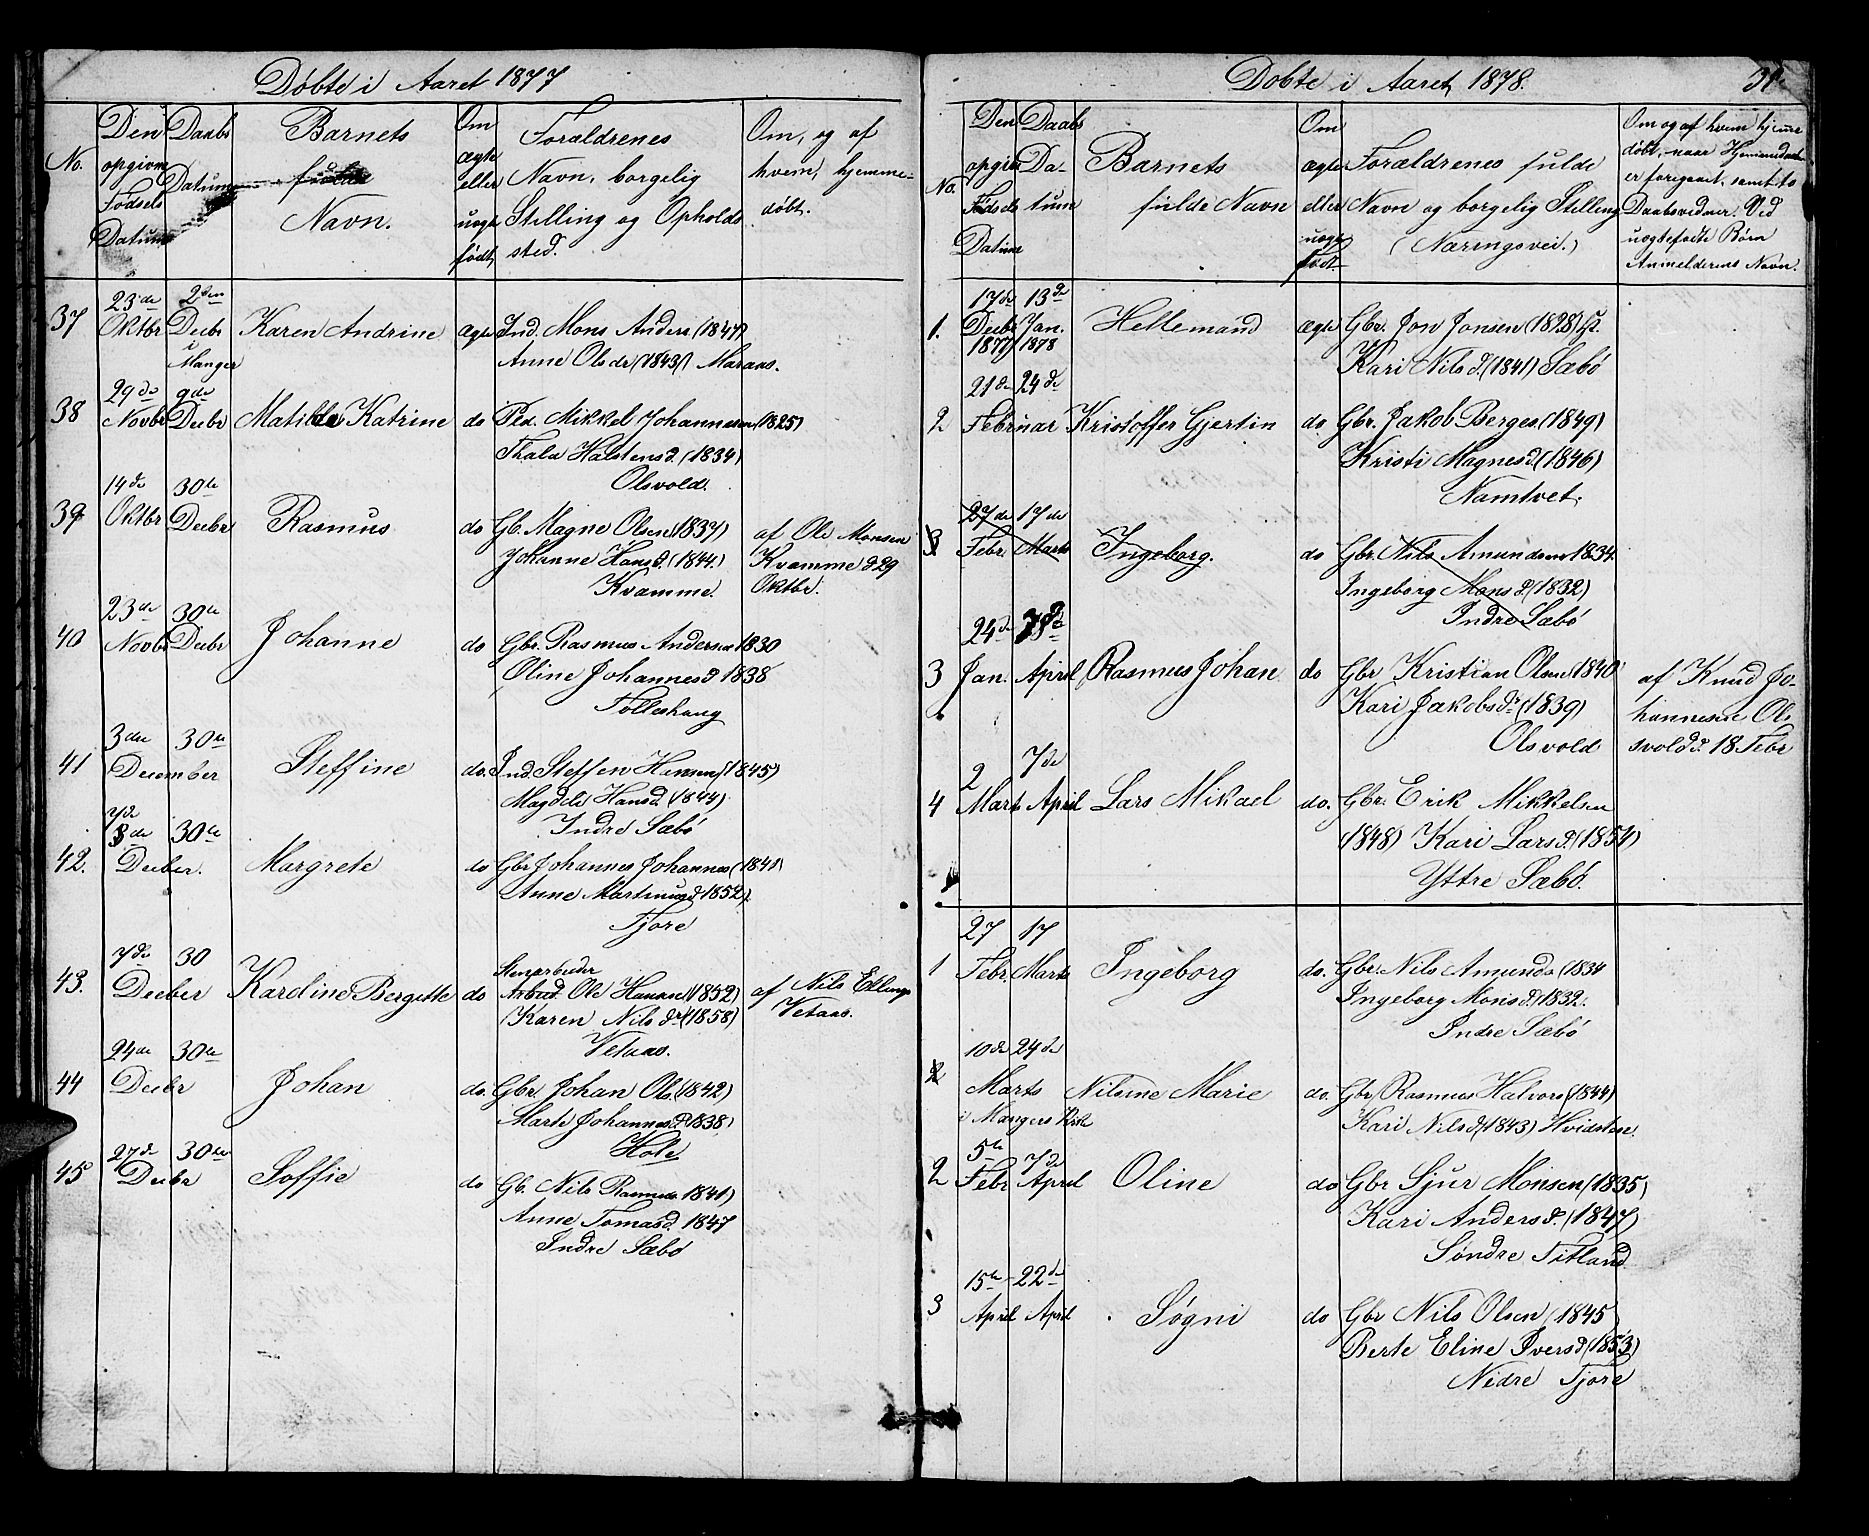 Døbte i Aaret 1877
No.
Den opgivne Fødsels Datum
Daabs Datum
Barnets fulde Navn.
Om ægte eller uægte født
Forældrenes Navn, borgelig Stilling og Opholds sted.
Om, og af hvem, hjemme-døbt.
37 23de Oktbr 2den Decbr i Manger Karen Andrine ægte Ind. Mons Anders (1847)
Anne Olsdr (1843)
38 29de Novbr 9de Decbr Matilde Katrine do Pea. Mikkel Johannesen (1825)
Halstensd. (1834)
Olsvold.
39 14de Oktbr 30te Decbr Rasmus do Gb. Magne Olsen (1837) af Ole Monsen
Johanne Hansd. (1844.) Kvamme d. 29
Kvamme. Oktbr.
40 23de Novbr 30te Decbr Johanne do Gbr. Rasmus Andersen 1830
Oline Johannesd 1838
Tolleshaug
41 3den 30te December Steffine do. Ind. Steffen Hansen (1845)
Magdele Hansd. (1844)
Indre Sæbø
42. 7de 30te Decber. Margrete do Gbr Johannes Johannes (1841)
Anne Martinusd. 1852)
Fjore
43. 7de 30 Decber Karoline Bergette do Stenarbeider
Arbeid. Ole Hansen (1852) af Nils Ellings
Karen Nilsdr (1858) Vetaas.
Vetaas.
44 24de 30te Decbr Johan do. Gbr. Johan Ols. (1842)
Marte Johannesd. 1838)
Hole
45 27de 30te Decbr Soffie do Gb. Nils Rasmus. 1841)
Anne Tomasd. 1847
Indre Sæbø
Døbte i Aaret 1878.
No.
Den opgivne Fødsels Datum
Daabs Datum
Barnets fulde Navn
Om ægte eller uægte født
Forældrenes fulde Navn og borgelig Stilling (Næringsvei.)
Om og af hvem hjemme
døbt, naar Hjemmedaaben
er foregaaet, samt to
Daabsvidner. Ved
uægtefødte Børn
Anmelderens Navn.
1. 17de Decbr 1877 13de Jan. 1878 Hellemand ægte Gbr. Jon Jonsen (1828)
Kari Nilsd. (1841) Sæbø
2 21de 24de Februar Kristoffer Gjertin do Gbr. Jakob Berges. (1849)
Kristi Magnesd. (1846)
Namtvet.
3 27de Febr. 17de Marts Ingeborg. do Gbr. Nils Amundsen 1834.
Ingeborg Monsd. (1832)
Indre Sæbø
3 24de Jan. April Rasmus Johan do Gbr Kristian Olsen 1840 af Knud Jo-
Kari Jakobsdr. (1839) hannesen Ol-
Olsvold svold d. 18 Febr
4 2 Marts 7de April Lars Mikael do. Gbr. Erik Mikkelsen
(1848) Kari Larsd. (1854)
Yttre Sæbø.
1 27 Febr. 17 Marts Ingeborg do. Gbr. Nils Amunds (1834
Ingeborg Monsd. 1832.
Indre Sæbø
2 10de 24de Marts i Mangers Kirke Nilsine Marie do. Gbr Rasmus Halvors (1844)
Kari Nilsd. (1843) Hvidsten.
2 5te Febr 7de April Oline do Gbr Sjur Monsen (1835)
Kari Andersd. (1847)
Søndre Titland
3 15te April 22de April Søgni do Gbr Nils Olsen (1845
Berte Eline Iversd (1853)
Nedre Fjore